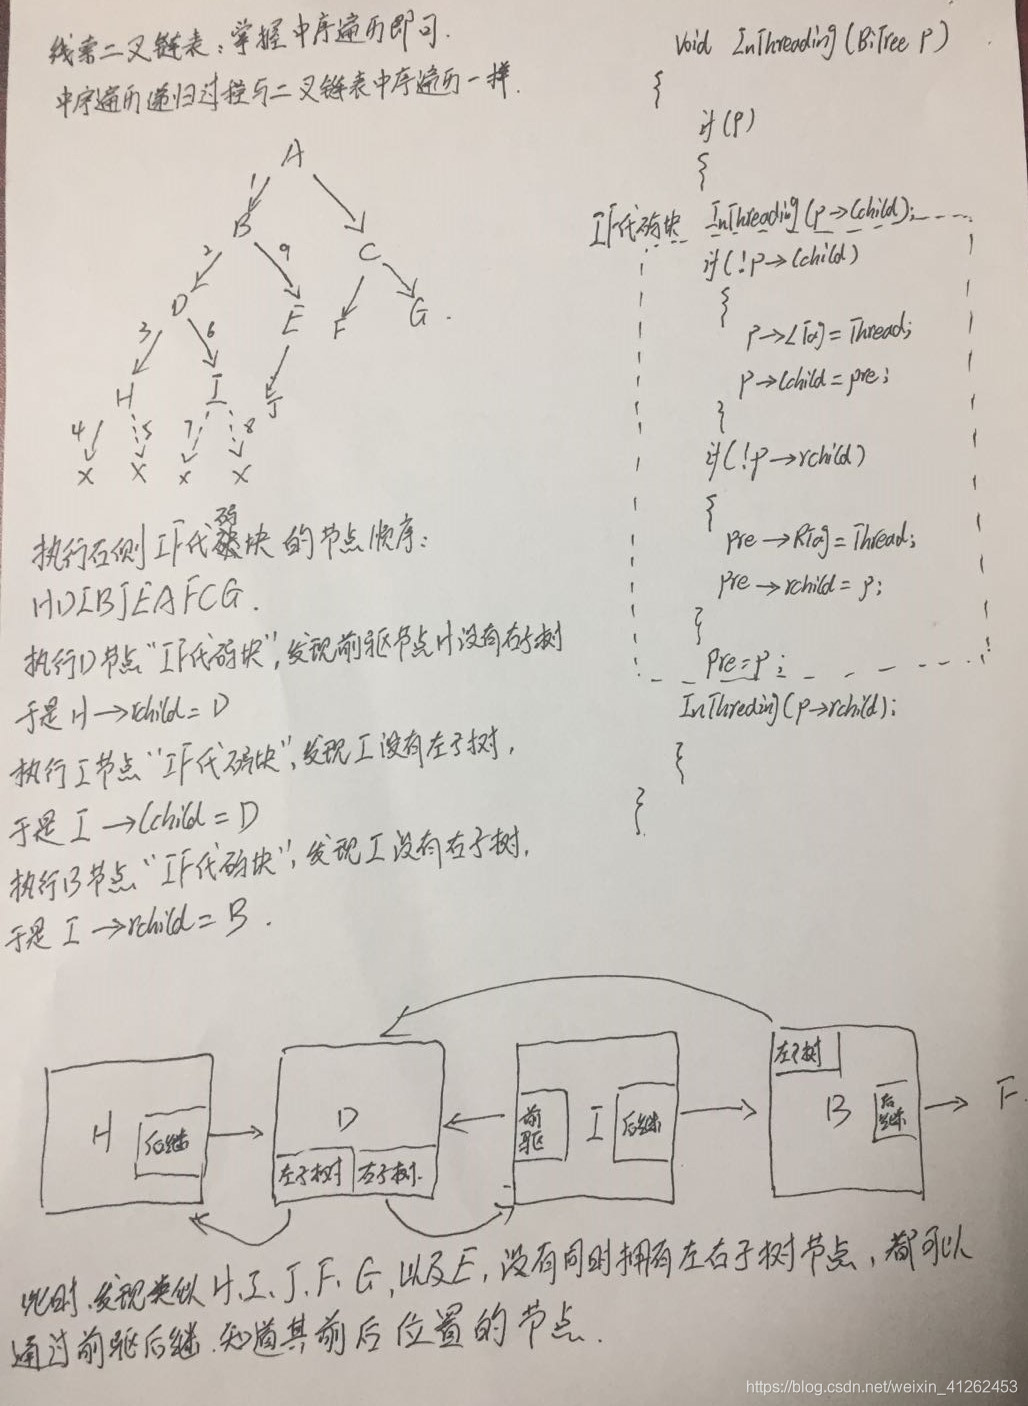 线索二叉链表：掌握中序遍历即可.
中序遍历递归过程与二叉链表中序遍历一样.
A
1
B
C
2
9
D
E
F
G.
3
6
H
I
J
4
5
7
8
X
X
X
X
执行右侧IF代码块的节点顺序：
HDIBJEAFCG.
执行D节点“IF代码块”，发现前驱节点H没有右子树
于是H→rchild=D
执行I节点“IF代码块”，发现I没有左子树，
于是I→lchild=D
执行B节点“IF代码块”，发现I没有右子树，
于是I→rchild=B.
Void InThreading(BiTree P)
{
if(P)
{
IF代码块
InThreading(p→lchild);
if(!p→lchild)
{
p→LTag=Thread;
p→lchild=pre;
}
if(!p→rchild)
{
pre→RTag=Thread;
pre→rchild=p;
}
Pre=p;
InThreding(p→rchild);
}
}
H
后继
D
左子树
右子树.
前驱
I
后继
左子树
B
后继
F.
此时.发现类似H、I、J、F、G,以及E,没有同时拥有左右子树节点,都可以
通过前驱后继.知道其前后位置的节点.
https://blog.csdn.net/weixin_41262453